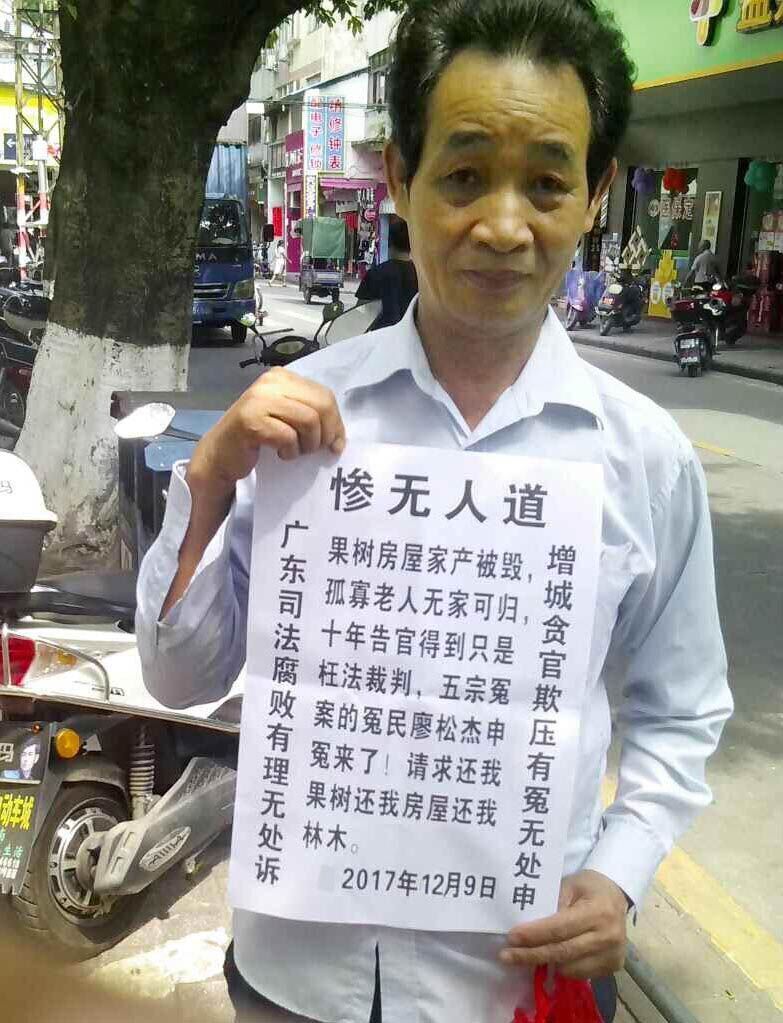 惨无人道
增城贪官欺压有冤无处申
果树房屋家产被毁，
孤寡老人无家可归，
十年告官得到只是
枉法裁判，五宗冤
案的冤民廖松杰申
冤来了！请求还我
果树还我房屋还我
林木。
2017年12月9日
广东司法腐败有理无处诉
精修钟表
配电子
动车城
生活